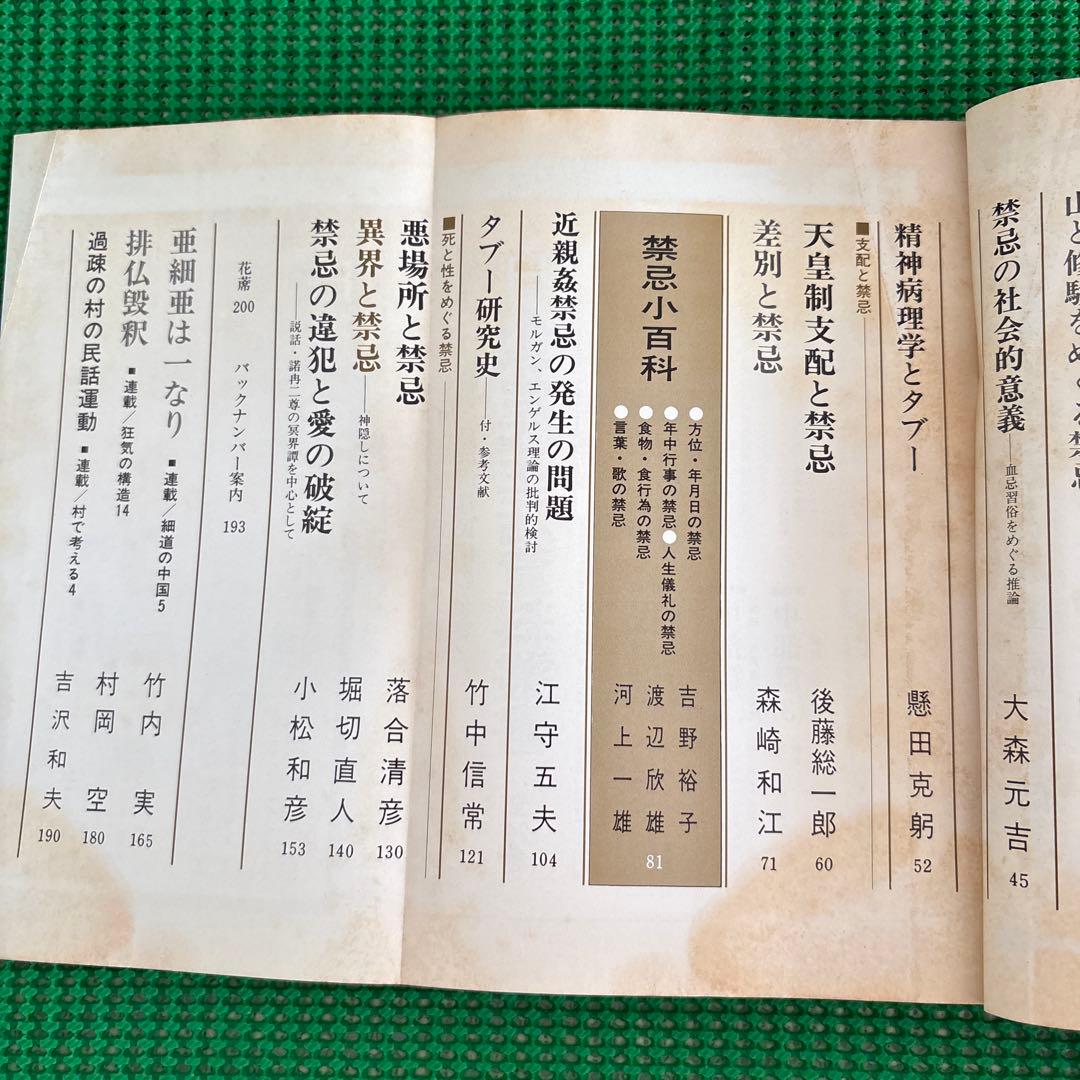 山と修験をめぐる禁忌
禁忌の社会的意義――血忌習俗をめぐる推論 大森元吉 45
精神病理学とタブー 懸田克躬 52
■支配と禁忌
天皇制支配と禁忌 後藤総一郎 60
差別と禁忌 森崎和江 71
禁忌小百科
●方位・年月日の禁忌
●年中行事の禁忌●人生儀礼の禁忌
●食物・食行為の禁忌
●言葉・歌の禁忌
吉野裕子
渡辺欣雄
河上一雄
81
近親姦禁忌の発生の問題 江守五夫 104
――モルガン、エンゲルス理論の批判的検討
タブー研究史――付・参考文献 竹中信常 121
■死と性をめぐる禁忌
悪場所と禁忌 落合清彦 130
異界と禁忌――神隠しについて 堀切直人 140
禁忌の違犯と愛の破綻 小松和彦 153
――説話・諾冉二尊の冥界譚を中心として
花蓆 200 バックナンバー案内 193
亜細亜は一なり ■連載／細道の中国5 竹内実 165
排仏毀釈 ■連載／狂気の構造14 村岡空 180
過疎の村の民話運動 ■連載／村で考える4 吉沢和夫 190